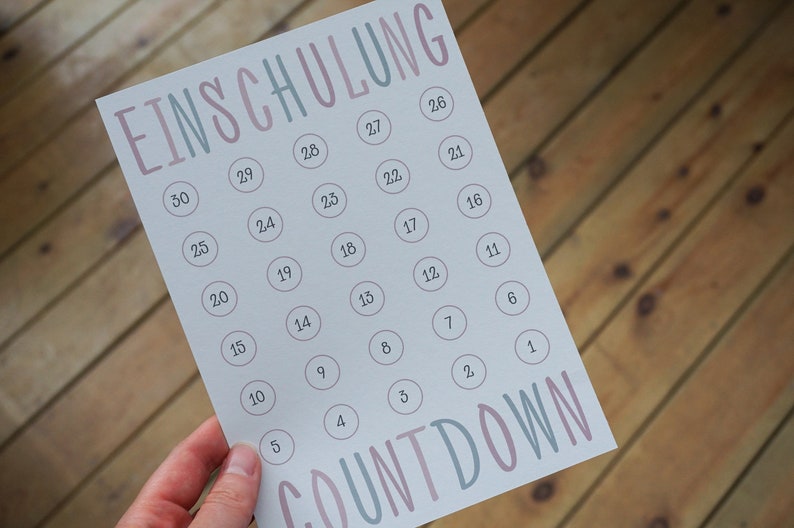 EINSCHULUNG
30 29 28 27 26
25 24 23 22 21
20 19 18 17 16
15 14 13 12 11
10 9 8 7 6
5 4 3 2 1
COUNTDOWN